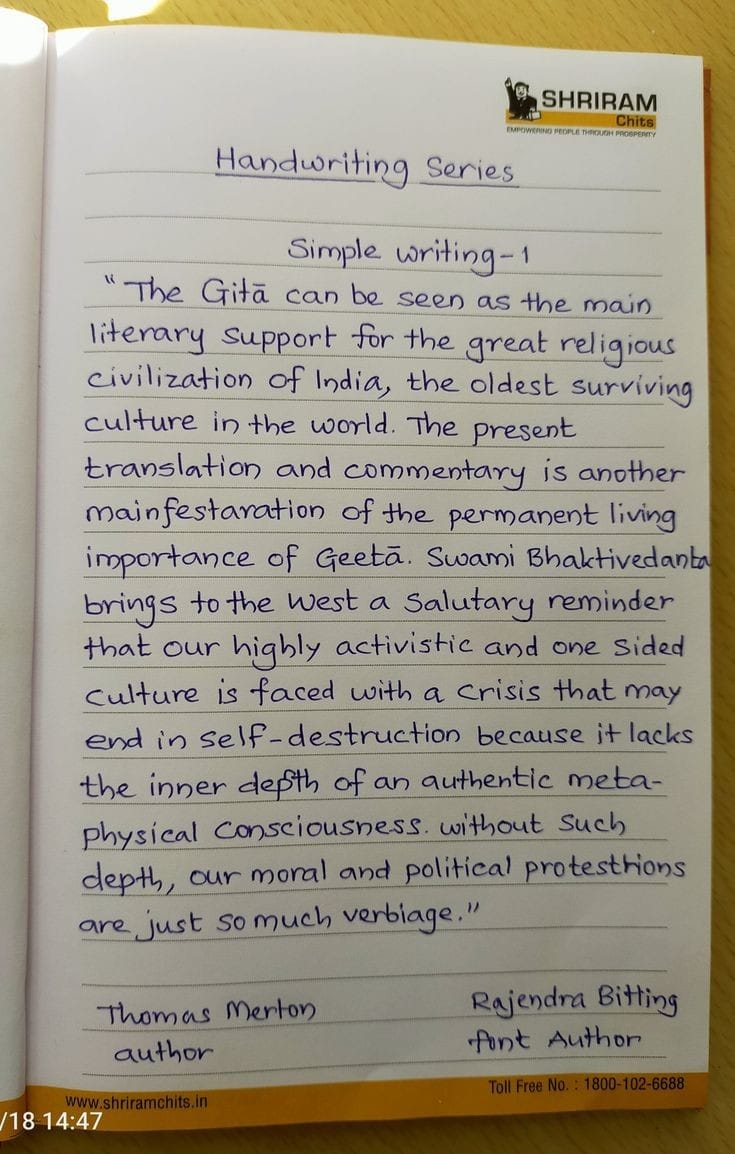 SHRIRAM
Chits
EMPOWERING PEOPLE THROUGH PROSPERITY
Handwriting Series
Simple writing-1
"The Gitā can be seen as the main
literary support for the great religious
civilization of India, the oldest surviving
culture in the world. The present
translation and commentary is another
mainfestaration of the permanent living
importance of Geetā. Swami Bhaktivedanta
brings to the West a Salutary reminder
that our highly activistic and one sided
culture is faced with a crisis that may
end in self-destruction because it lacks
the inner depth of an authentic meta-
physical consciousness. without such
depth, our moral and political protesthions
are just so much verbiage."
Thomas Merton
author
Rajendra Bitting
font Author
Toll Free No. : 1800-102-6688
www.shriramchits.in
/18 14:47